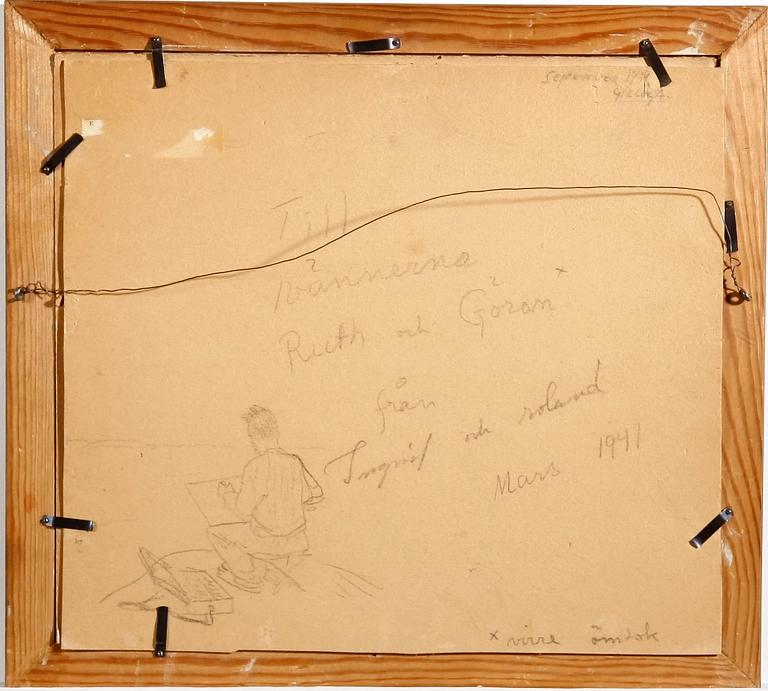 September
E
Till
vännerna
Ruth och Göran x
från
Ingrid och roland
Mars 1941
x vice